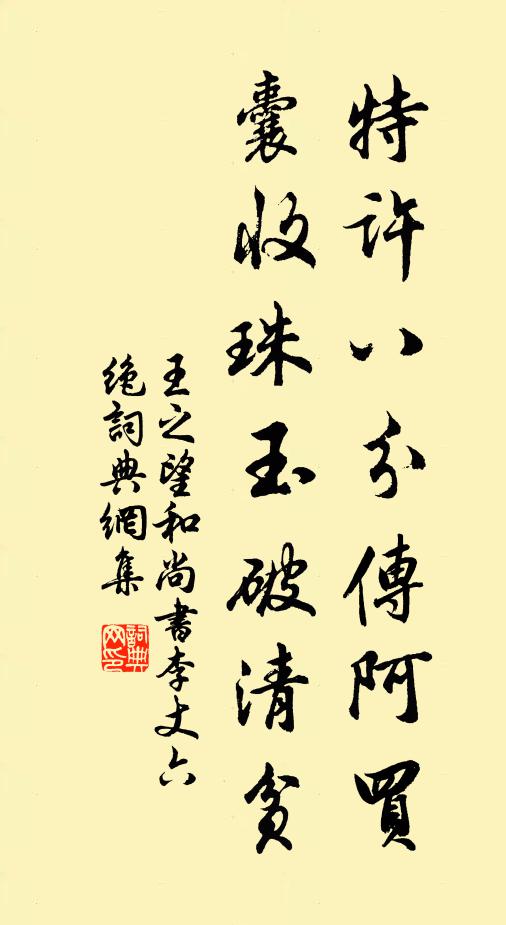 特許八分傳阿買
囊收珠玉破清貧
王之望和尚書李丈六
絶詞典網集
詞典網印